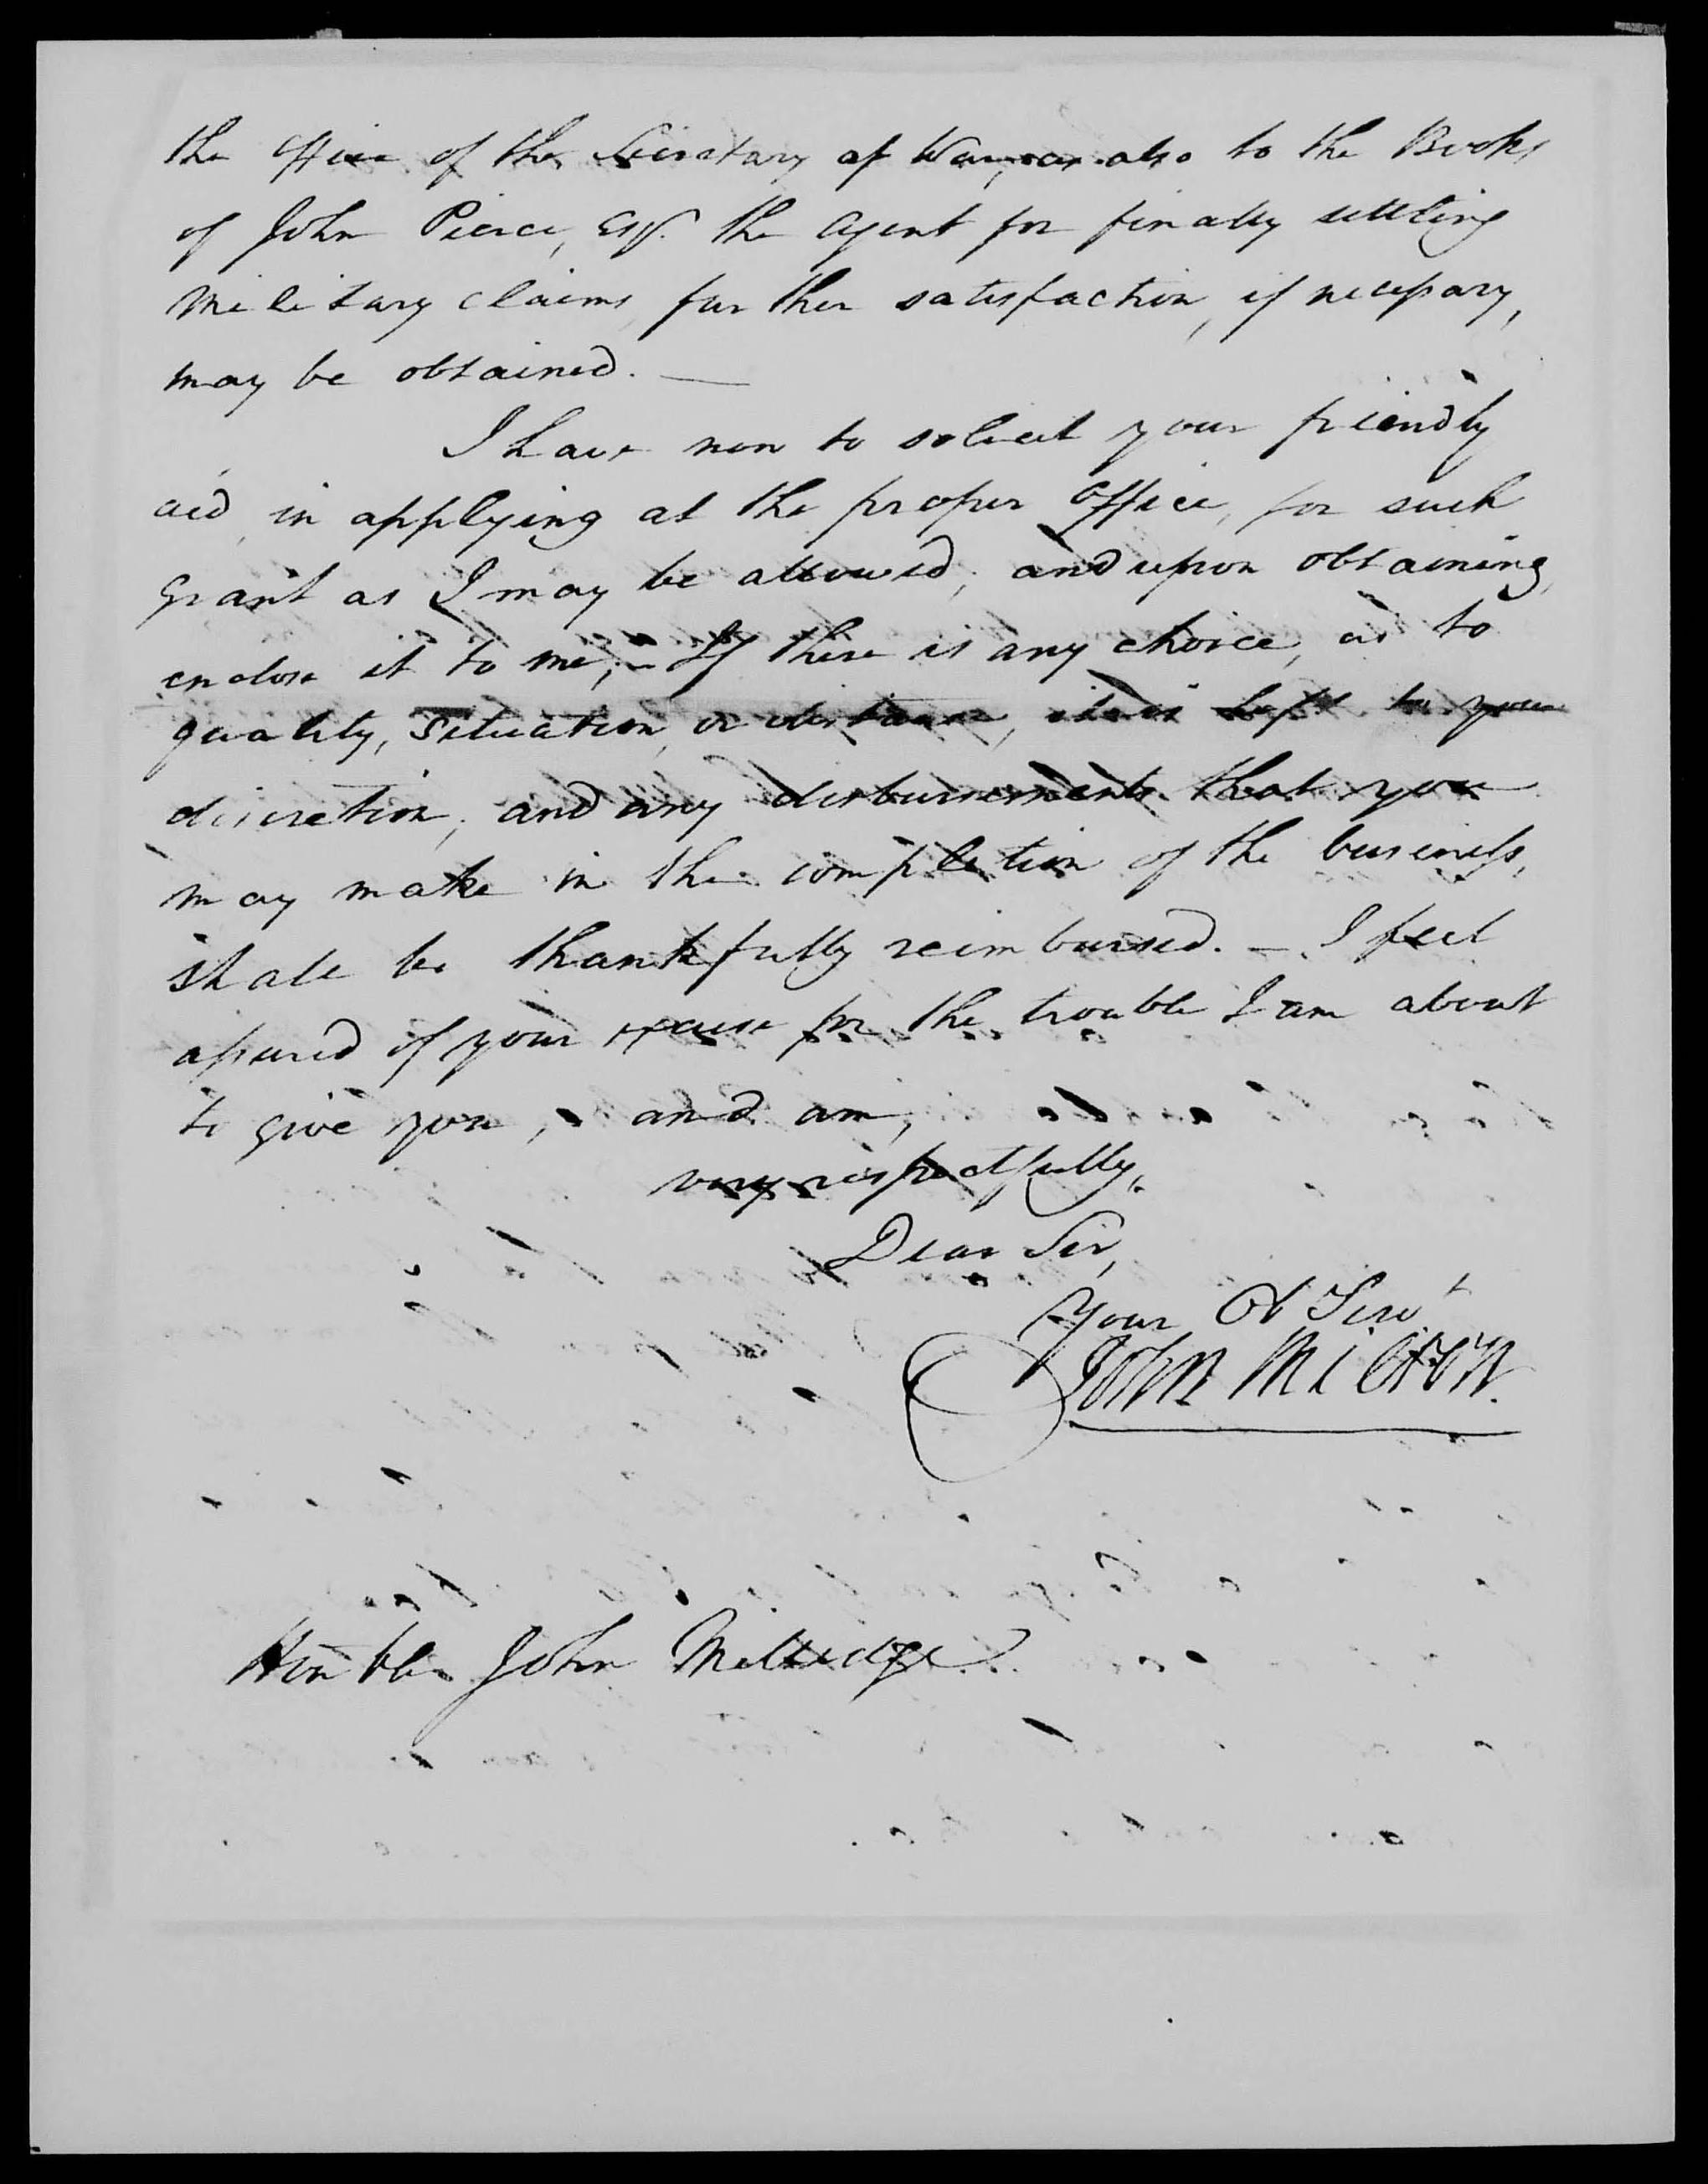 the Office of the Secretary of War, as also to the Books
of John Pierce, Esqr. the Agent for finally settling
Military claims, further satisfaction, if necessary,
may be obtained. —
I have now to solicit your friendly
aid, in applying at the proper Office, for such
Grant as I may be allowed, and upon obtaining,
enclose it to me; – If there is any choice, as to
quality, situation, or distance, it is left to your
discretion, and any disbursements that you
may make in the completion of the business,
shall be thankfully reimbursed. – I feel
assured of your excuse for the trouble I am about
to give you, and am,
very respectfully,
Dear Sir,
Your Ob Servt
John Milton.
Honble John Milledge